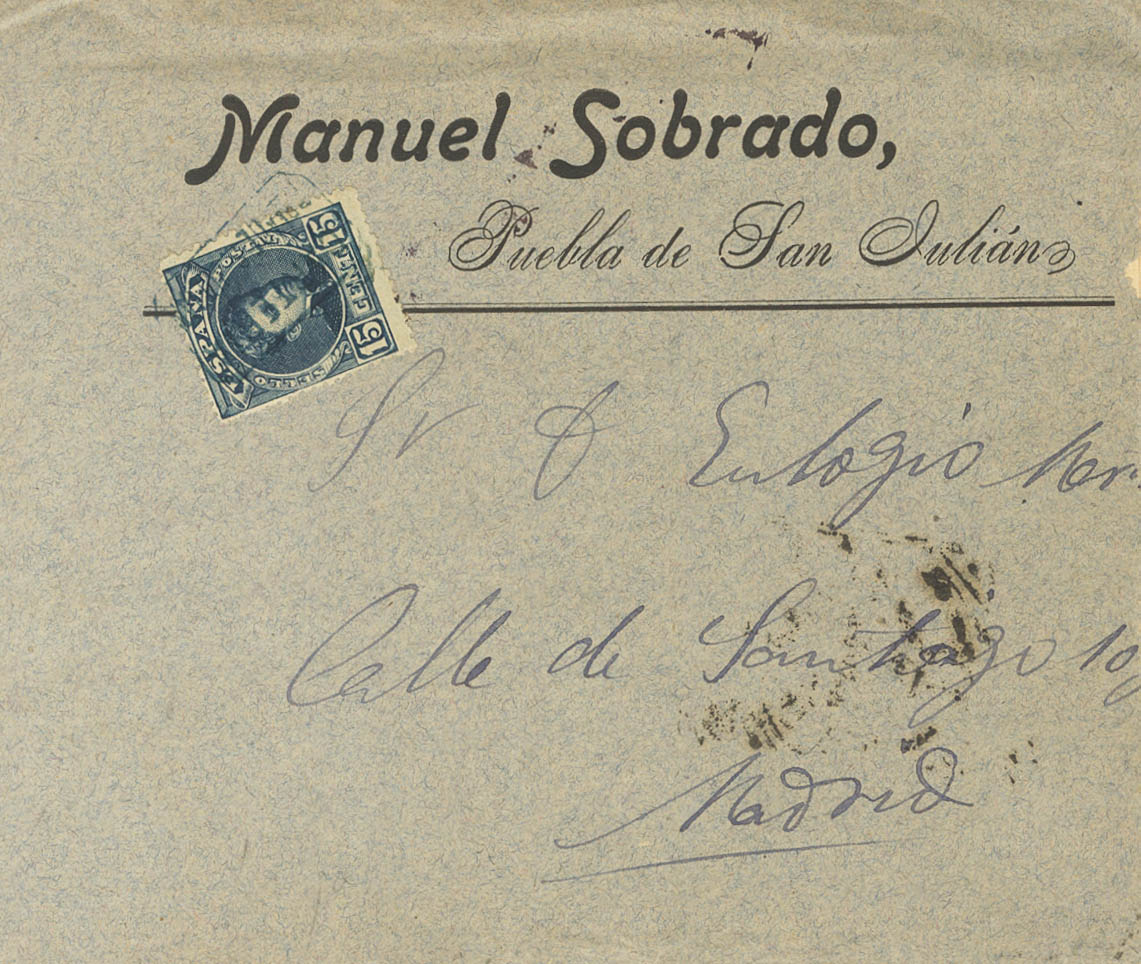 Manuel Sobrado,
Puebla de San Julián
ESPAÑA
15 CENT 15
Sr D Eulogio
Calle de Santiago
Madrid